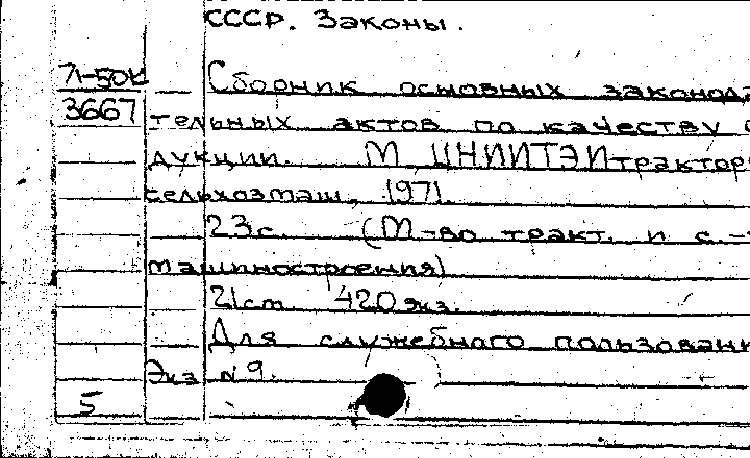 СССР. Законы.
71-50к Сборник основных законода
3667 тельных актов по качеству
дукции. М ЦНИИТЭИтрактор
сельхозмаш, 1971.
23с. (М-во тракт. и с.-
машиностроения)
21см 420 экз.
Для служебного пользовани
Экз №9.
5